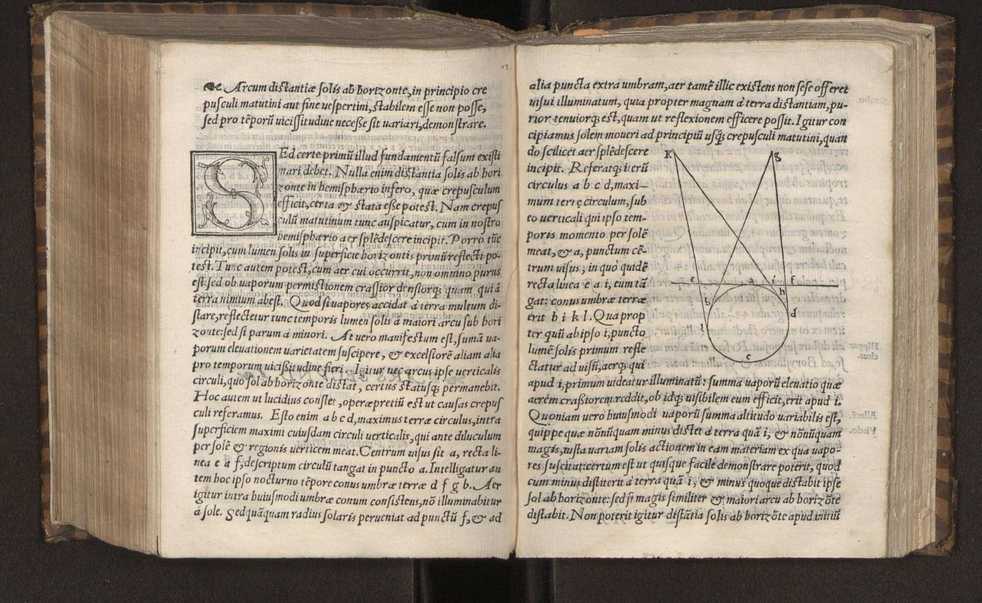 Arcum distantiæ solis ab horizonte, in principio cre
pusculi matutini aut fine vespertini, stabilem esse non posse,
sed pro tẽporũ vicissitudine necesse sit variari, demonstrare.
SEd certe primũ illud fundamentũ falsum existi
mari debet. Nulla enim distantia solis ab hori
zonte in hemisphærio infero, quæ crepusculum
efficit, certa & stata esse potest. Nam crepus
culũ matutinum tunc auspicatur, cum in nostro
hemisphærio aer splẽdescere incipit. Porro tũc
incipit, cum lumen solis in superficie horizontis primũ reflecti po-
test. Tunc autem potest, cum aer cui occurrit, non omnino purus
est: sed ob vaporum permistionem crassior densiorq; quam qui à
terra nimium abest. Quod si vapores accidat à terra multum di-
stare, reflectetur tunc temporis lumen solis à maiori arcu sub hori
zonte: sed si parum à minori. At vero manifestum est, sumã va-
porum eleuationem varietatem suscipere, & excelsiorẽ aliam alia
pro temporum vicissitudine fieri. Igitur nec arcus ipse verticalis
circuli, quo sol ab horizonte distat, certus statusq; permanebit.
Hoc autem ut lucidius constet, operæpretiũ est ut causas crepus
culi referamus. Esto enim a b c d, maximus terræ circulus, intra
superficiem maximi cuiusdam circuli verticalis, qui ante diluculum
per solẽ & regionis verticem meat. Centrum visus sit a, recta li-
nea e a f, descriptum circulũ tangat in puncto a. Intelligatur au
tem hoc ipso nocturno tẽpore conus umbræ terræ d f g b. Aer
igitur intra huiusmodi umbræ conum consistens, nõ illuminabitur
à sole. Sed quãquam radius solaris perueniat ad punctũ f, & ad
alia puncta extra umbram, aer tamẽ illic existens non sese offeret
visui illuminatum, quia propter magnam à terra distantiam, pu-
rior tenuiorq; est, quam ut reflexionem efficere possit. Igitur con
cipiamus solem moueri ad principiũ usq; crepusculi matutini, quan
do scilicet aer splẽdescere
incipit. Referatq; iterũ
circulus a b c d, maxi-
mum terrę circulum, sub
eo verticali qui ipso tem-
poris momento per solẽ
meat, & a, punctum cẽ-
trum visus, in quo quidẽ
recta linea e a i, cum tã
gat: conus umbræ terræ
erit h i k l. Qua prop
ter quũ ab ipso i, puncto
lumẽ solis primum refle
ctatur ad visũ, aerq; qui
apud i, primum videatur illuminatũ: summa vaporũ eleuatio quæ
aerẽm crassiorem reddit, ob idq; visibilem eum efficit, erit apud i.
Quoniam vero huiusmodi vaporũ summa altitudo variabilis est,
quippe quæ nõnũquam minus distet à terra quã i, & nõnũquam
magis, iuxta variam solis actionem in eam materiam ex qua vapo-
res suscitat: certum est ut quisque facile demonstrare poterit, quod
cum minus distiterit à terra quã i, & minus quoque distabit ipse
sol ab horizonte: sed si magis similiter & maiori arcu ab horizõte
distabit. Non poterit igitur distãtia solis ab horizõte apud initiũ
K
g
e
a
i
f
b
h
l
d
c